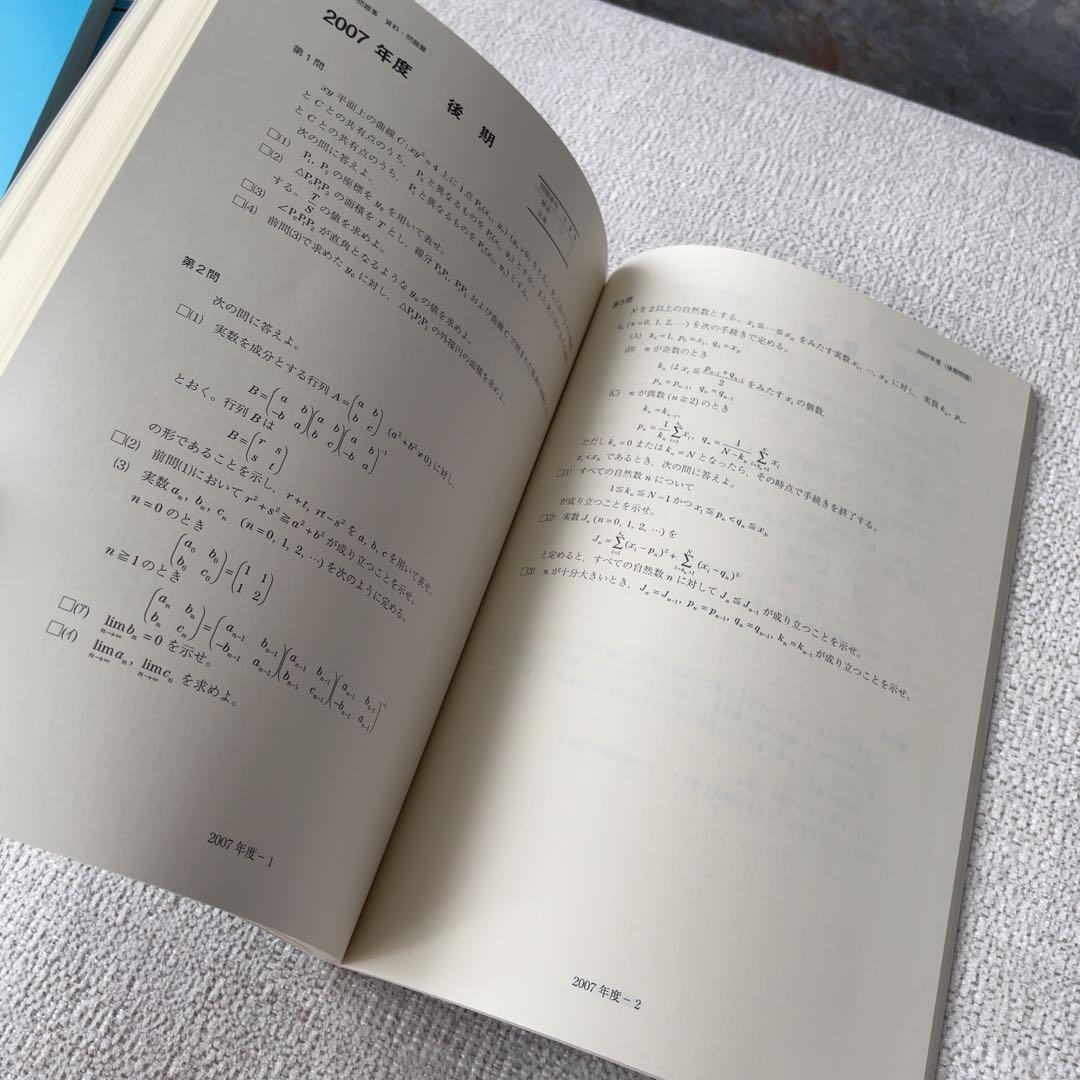 問題集 資料・問題篇
2007 年度 後 期
第1問
xy 平面上の曲線 C : xy² = 4 上に1点 P₀(x₀, y₀) (y₀>0) をとる。
とCとの共有点のうち, P₀と異なるものをP₁(x₁, y₁) とする。
とCとの共有点のうち, P₁と異なるものをP₂(x₂, y₂) とする。
次の問に答えよ。
□(1) P₁, P₂ の座標を y₀ を用いて表せ。
□(2) △P₀P₁P₂ の面積を T とし, 線分 P₀P₁, P₁P₂ および曲線 C で囲まれた
する。 T/S の値を求めよ。
□(3) ∠P₀P₁P₂ が直角となるような y₀ の値を求めよ。
□(4) 前問(3)で求めた y₀ に対し, △P₀P₁P₂ の外接円の面積を求めよ。
第2問
次の問に答えよ。
□(1) 実数を成分とする行列 A=(a b / b c) (a²+b²≠0) に対し,
B=(a b / -b a)(a b / b c)(a b / -b a)⁻¹
とおく。行列 B は
B=(r s / s t)
の形であることを示し, r+t, rt-s² を a, b, c を用いて表せ。
□(2) 前問(1)において r²+s²≧a²+b² が成り立つことを示せ。
(3) 実数 aₙ, bₙ, cₙ (n=0, 1, 2, …) を次のように定める。
n=0 のとき
(a₀ b₀ / b₀ c₀)=(1 1 / 1 2)
n≧1 のとき
(aₙ bₙ / bₙ cₙ)=(aₙ₋₁ bₙ₋₁ / -bₙ₋₁ aₙ₋₁)(aₙ₋₁ bₙ₋₁ / bₙ₋₁ cₙ₋₁)(aₙ₋₁ bₙ₋₁ / -bₙ₋₁ aₙ₋₁)⁻¹
□(ア) lim n→∞ bₙ=0 を示せ。
□(イ) lim n→∞ aₙ, lim n→∞ cₙ を求めよ。
2007 年度 - 1
2007年度〈後期問題〉
第3問
N を 2 以上の自然数とする。x₁≦…≦x_N をみたす実数 x₁, …, x_N に対し, 実数 kₙ, pₙ,
qₙ (n=0, 1, 2, …) を次の手続きで定める。
(A) k₀=1, p₀=x₁, q₀=x_N
(B) n が奇数のとき
kₙ は xᵢ≦(pₙ₋₁+qₙ₋₁)/2 をみたす xᵢ の個数,
pₙ=pₙ₋₁, qₙ=qₙ₋₁
(C) n が偶数 (n≧2) のとき
kₙ=kₙ₋₁,
pₙ=1/kₙ Σ_{i=1}^{kₙ} xᵢ, qₙ=1/(N-kₙ) Σ_{i=kₙ+1}^{N} xᵢ
ただし kₙ=0 または kₙ=N となったら, その時点で手続きを終了する。
x₁<x_N であるとき, 次の問に答えよ。
□(1) すべての自然数 n について
1≦kₙ≦N-1 かつ x₁≦pₙ<qₙ≦x_N
が成り立つことを示せ。
□(2) 実数 Jₙ (n=0, 1, 2, …) を
Jₙ=Σ_{i=1}^{kₙ}(xᵢ-pₙ)²+Σ_{i=kₙ+1}^{N}(xᵢ-qₙ)²
と定めると, すべての自然数 n に対して Jₙ≦Jₙ₋₁ が成り立つことを示せ。
□(3) n が十分大きいとき, Jₙ=Jₙ₋₁, pₙ=pₙ₋₁, qₙ=qₙ₋₁, kₙ=kₙ₋₁ が成り立つことを示せ。
2007 年度 - 2